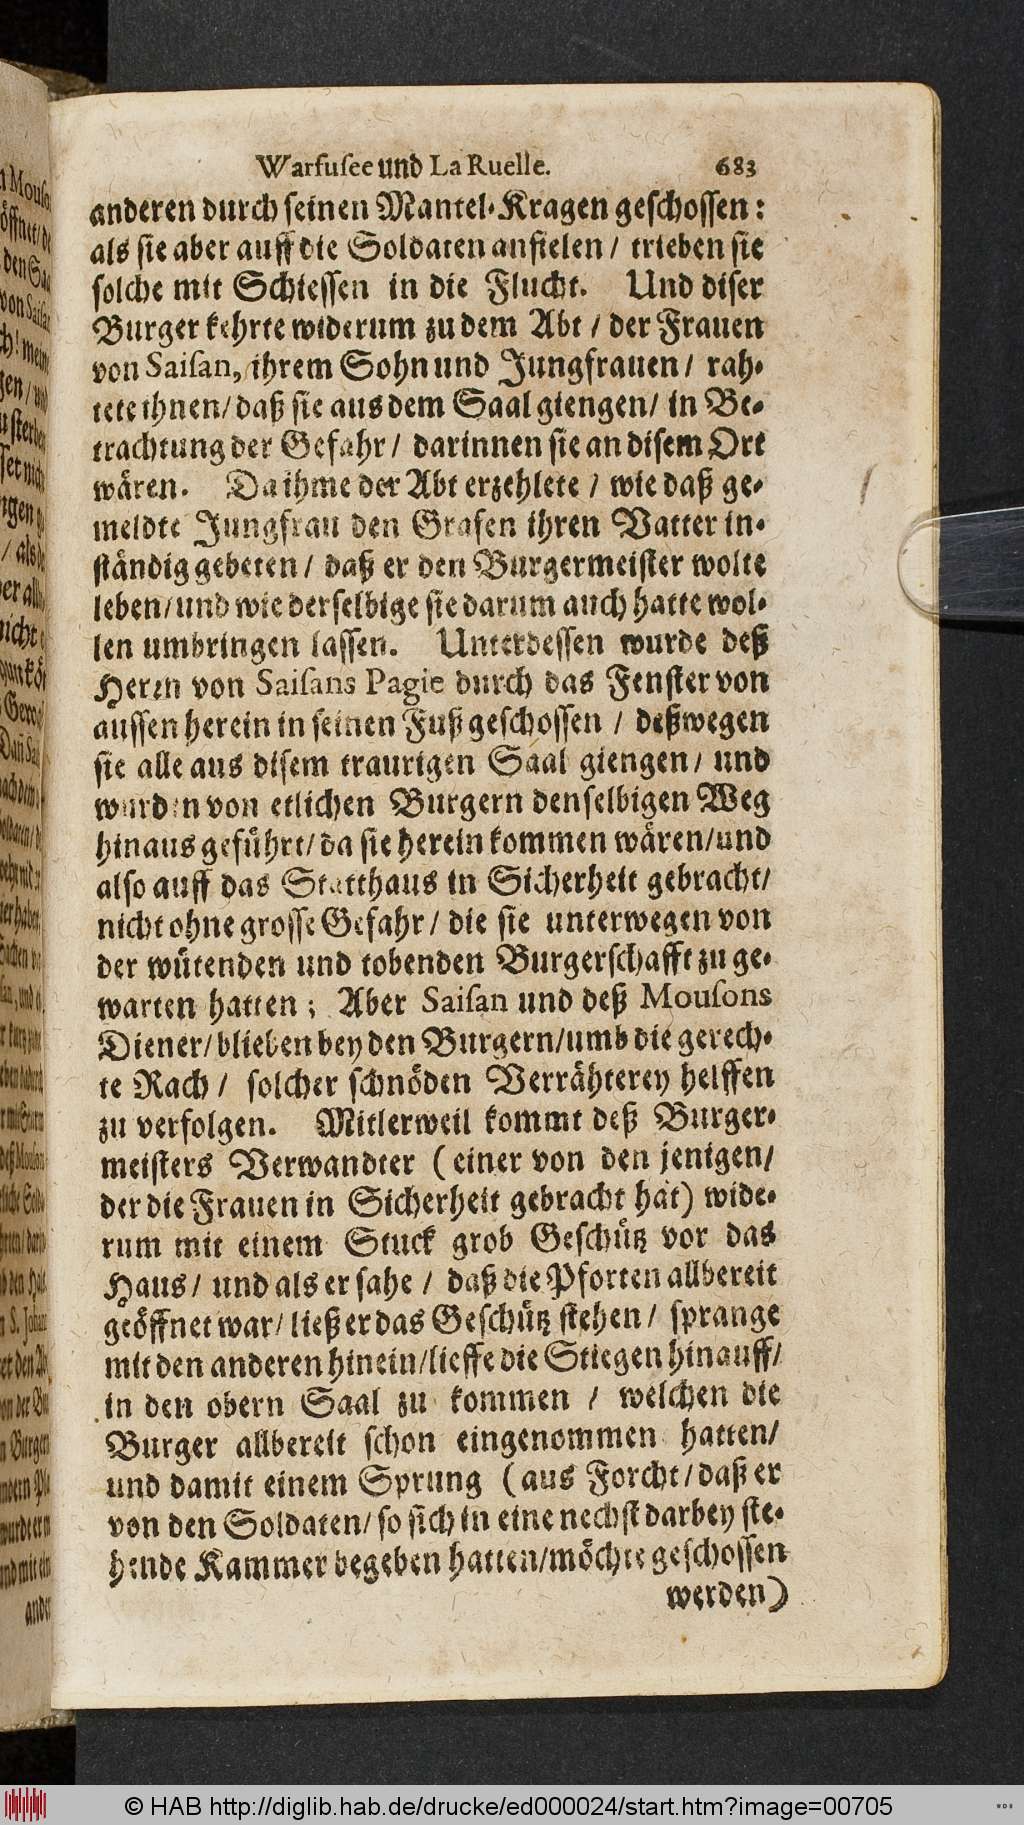 Warfusee und La Ruelle. 683
anderen durch seinen Mantel-Kragen geschossen:
als sie aber auff die Soldaten anfielen / trieben sie
solche mit Schiessen in die Flucht. Und diser
Burger kehrte widerum zu dem Abt / der Frauen
von Saisan, ihrem Sohn und Jungfrauen / rah-
tete ihnen / daß sie aus dem Saal giengen / in Be-
trachtung der Gefahr / darinnen sie an disem Ort
wären. Da ihme der Abt erzehlete / wie daß ge-
meldte Jungfrau den Grafen ihren Vatter in-
ständig gebeten / daß er den Burgermeister wolte
leben / und wie derselbige sie darum auch hatte wol-
len umbringen lassen. Unterdessen wurde deß
Herrn von Saisans Pagie durch das Fenster von
aussen herein in seinen Fuß geschossen / deßwegen
sie alle aus disem traurigen Saal giengen / und
wurden von etlichen Burgern denselbigen Weg
hinaus geführt / da sie herein kommen wären / und
also auff das Statthaus in Sicherheit gebracht /
nicht ohne grosse Gefahr / die sie unterwegen von
der wütenden und tobenden Burgerschafft zu ge-
warten hatten ; Aber Saisan und deß Mousons
Diener / blieben bey den Burgern / umb die gerech-
te Rach / solcher schnöden Verrähterey helffen
zu verfolgen. Mitlerweil kommt deß Burger-
meisters Verwandter ( einer von den jenigen /
der die Frauen in Sicherheit gebracht hat) wide-
rum mit einem Stuck grob Geschütz vor das
Haus / und als er sahe / daß die Pforten allbereit
geöffnet war / ließ er das Geschütz stehen / sprange
mit den anderen hinein / lieffe die Stiegen hinauff /
in den obern Saal zu kommen / welchen die
Burger allbereit schon eingenommen hatten /
und damit einem Sprung ( aus Forcht / daß er
von den Soldaten / so sich in eine nechst darbey ste-
hende Kammer begeben hatten / möchte geschossen
werden)
© HAB http://diglib.hab.de/drucke/ed000024/start.htm?image=00705